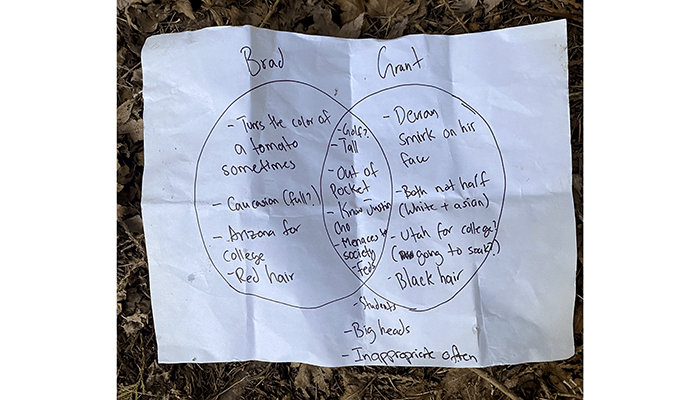 Brad
Grant
- Turns the color of
a tomato
sometimes
- Caucasion (full?)
- Arizona for
college
- Red hair
- Golf?
- Tall
- Out of
Pocket
- Know Justin
Cho
- Menaces to
society
- Feds
- Students
- Big heads
- Inappropriate often
- Demon
smirk on his
face
- Both not half
(white + asian)
- Utah for college?
(going to soak?)
- Black hair